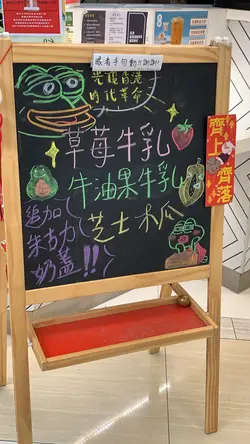 眼看手勿動!!謝謝!!
光復香港
時代革命
草莓牛乳
牛油果牛乳
芝士木瓜
追加
朱古力
奶蓋!!
齊上齊落